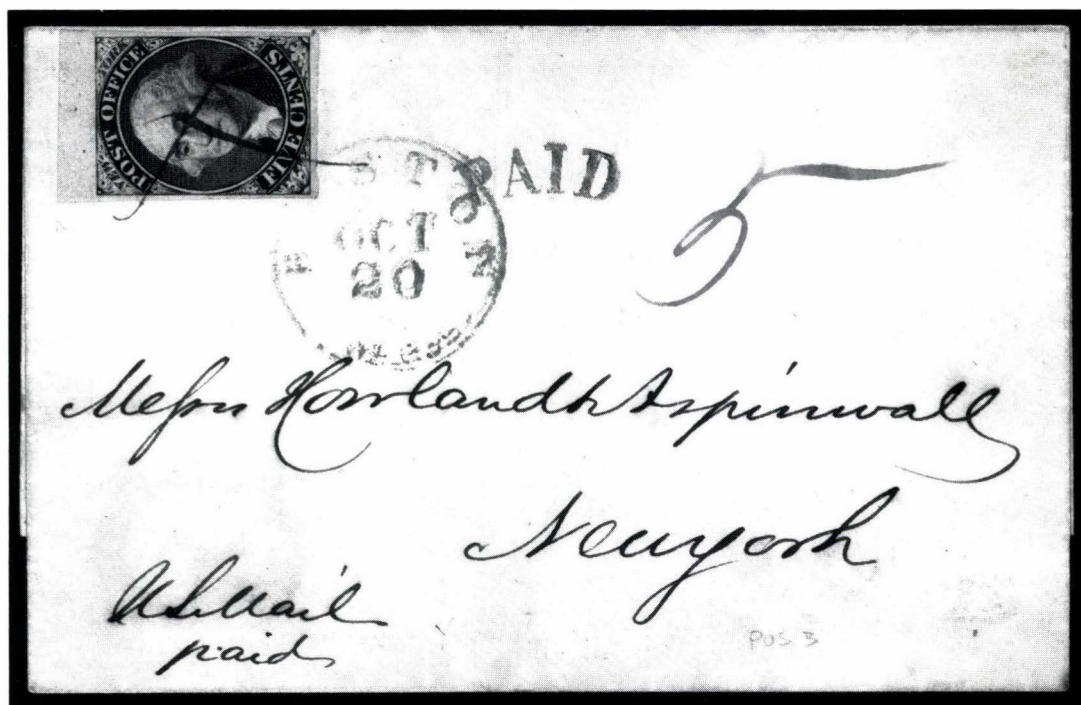 POST OFFICE
FIVE CENTS
PAID
BOSTON
OCT
20
5
Messrs Howland & Aspinwall
New York
U.S. Mail
paid
POS 3